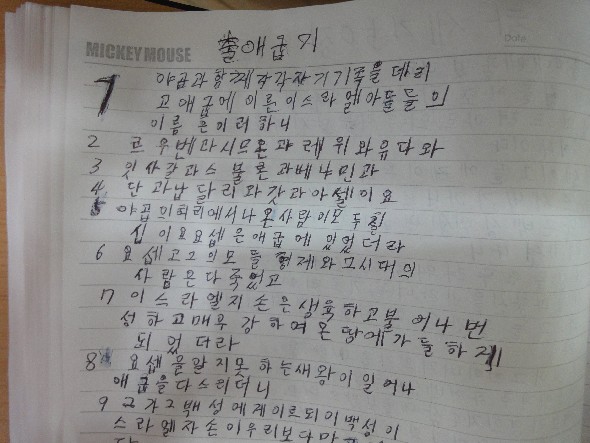 MICKEY MOUSE
출애굽기
Date
1 야곱과 함께 각각 자기 가족을 데리
고 애굽에 이른 이스라엘 아들들의
이름은 이러하니
2 르우벤과 시므온과 레위와 유다와
3 잇사갈과 스불론과 베냐민과
4 단과 납달리와 갓과 아셀이요
5 야곱의 허리에서 나온 사람이 모두 칠
십이요 요셉은 애굽에 있었더라
6 요셉고 그의 모들 형제와 그시대의
사람은 다 죽었고
7 이스라엘 자손은 생육하고 불어나 번
성하고 매우 강하여 온 땅에 가득하게
되었더라
8 요셉을 알지 못하는 새 왕이 일어나
애굽을 다스리더니
9 그가 그 백성에게 이르되 이 백성 이
스라엘 자손이 우리보다